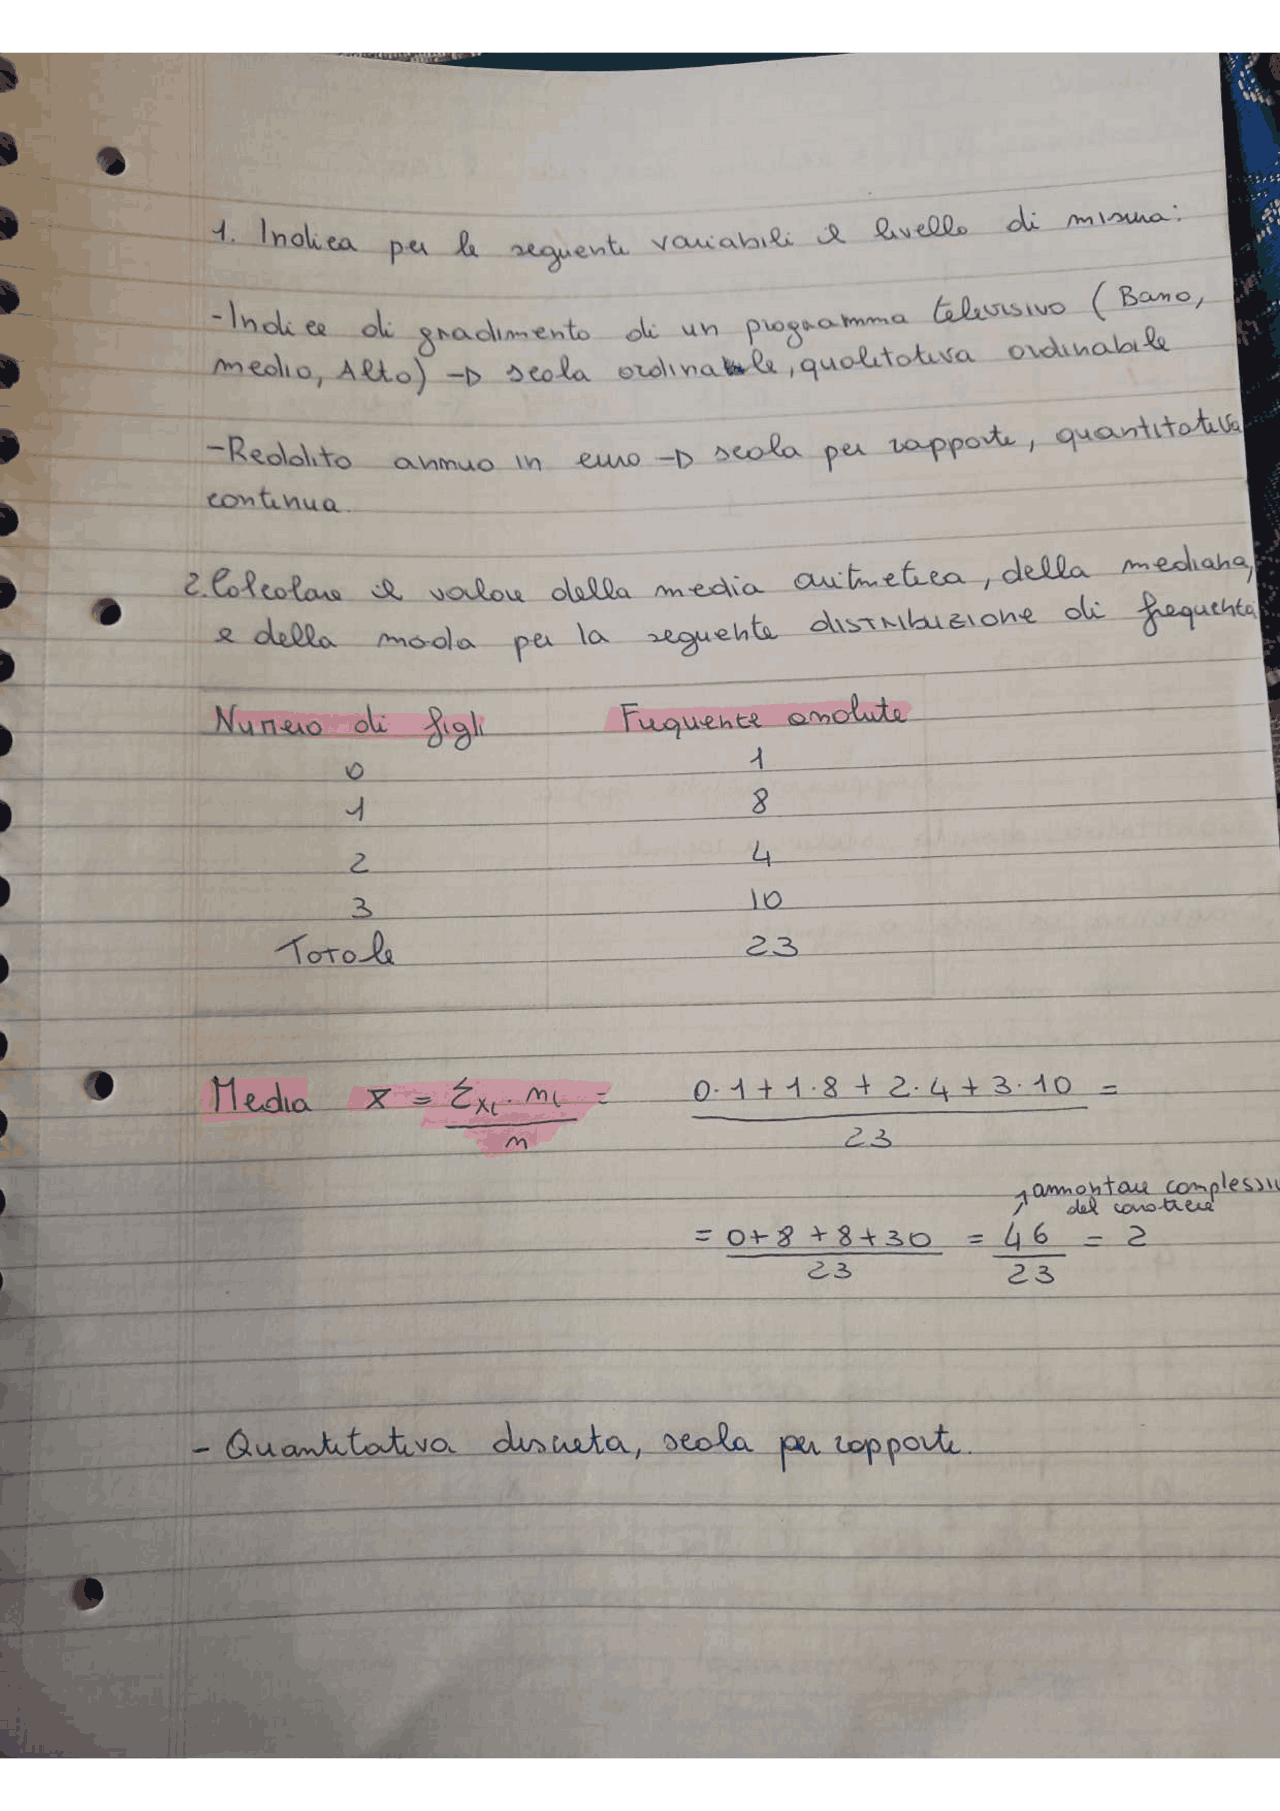 1. Indica per le seguenti variabili il livello di misura:
-Indice di gradimento di un programma televisivo (Basso,
medio, Alto) → scala ordinabile, qualitativa ordinabile
-Reddito annuo in euro → scala per rapporti, quantitativa
continua.
2. Calcolare il valore della media aritmetica, della mediana,
e della moda per la seguente distribuzione di frequenta
Numero di figli Frequente assolute
0 1
1 8
2 4
3 10
Totale 23
Media x̄ = Σxi · ni = 0·1+1·8+2·4+3·10 =
n 23
ammontare complessivo
del carattere
= 0+8+8+30 = 46 = 2
23 23
- Quantitativa discreta, scala per rapporti.